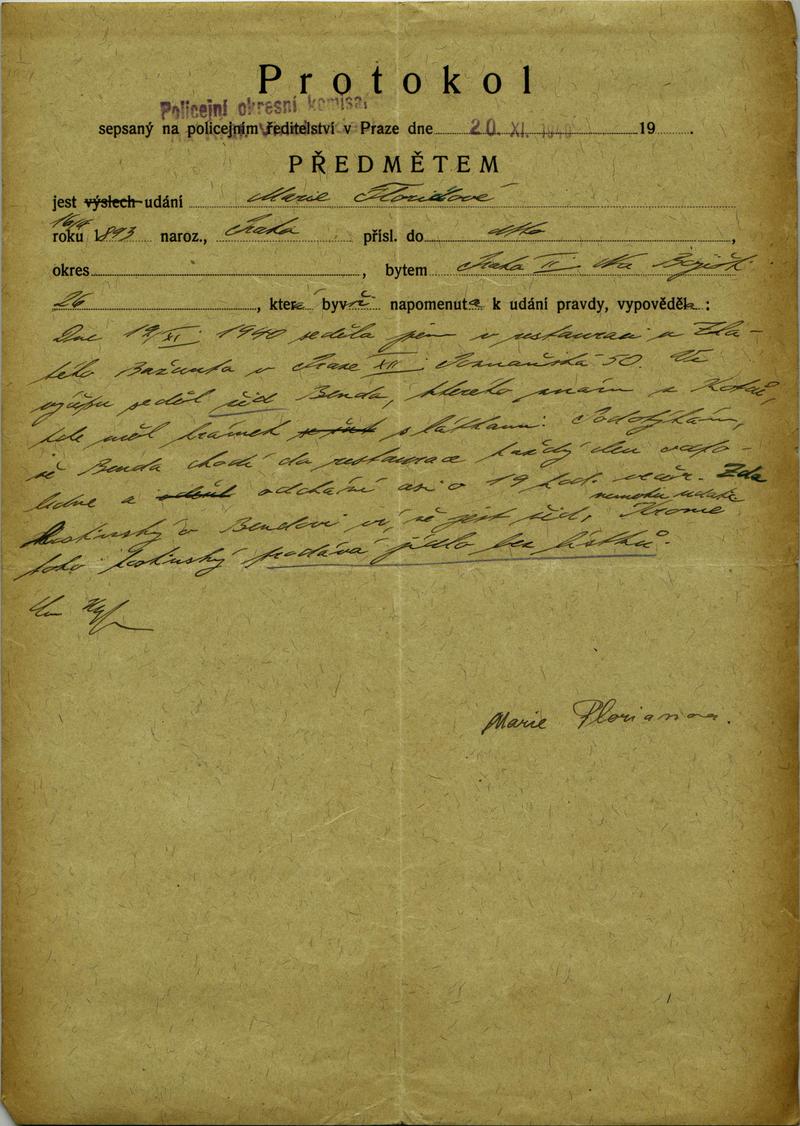 Protokol
Policejní okresní komisař
sepsaný na policejním ředitelství v Praze dne 20. XI. 1940 19 .
PŘEDMĚTEM
jest výslech udání Marie Floriánové
16/4
roku 1893 naroz., Praha přísl. do dtto,
okres , bytem Praha II. Na Bojišti
26, která byvši napomenuta k udání pravdy, vypověděla:
Dne 19/XI. 1940 seděla jsem v restauraci u Zla-
tého Bažanta v Praze XII. 50. Ve
seděl žid Benda, kterého znám z
kde měl krámek s látkami. Podotýkám,
že Benda chodí do restaurace každý den odpo-
ledne a odchází asi o 19 hod. večer. Zda
nemohu udati
hostinský o Bendovi ví, že jest žid, Kromě
toho hostinský prodává jídlo bez lístků.
Marie Florianova.